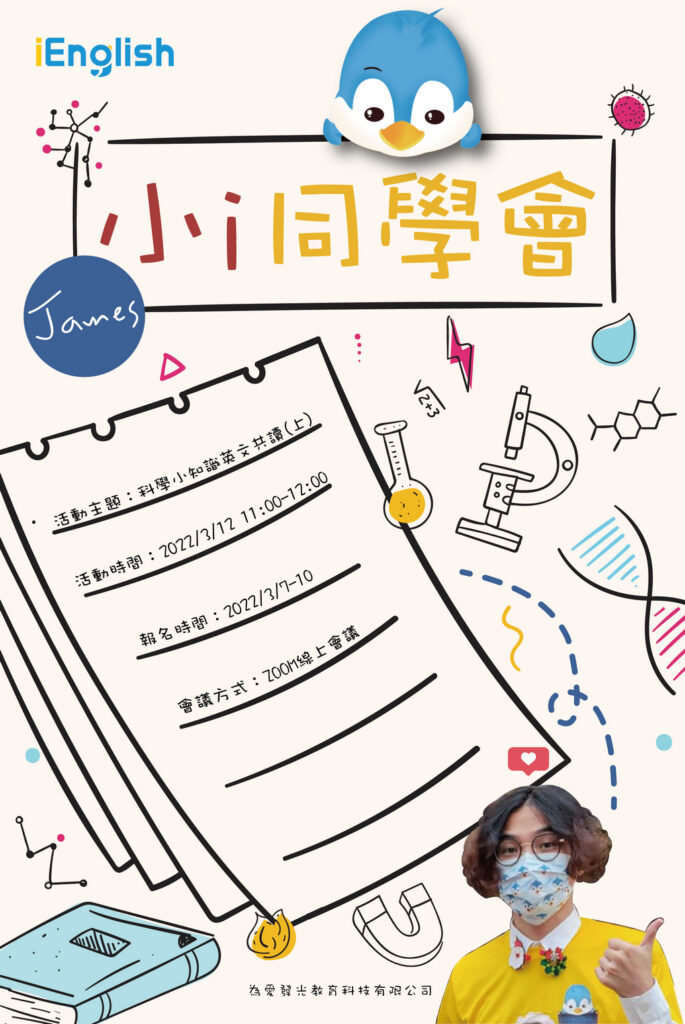 iEnglish
小i同學會
James
√2+3
活動主題：科學小知識英文共讀(上)
活動時間：2022/3/12 11:00-12:00
報名時間：2022/3/7-10
會議方式：ZOOM線上會議
為愛發光教育科技有限公司